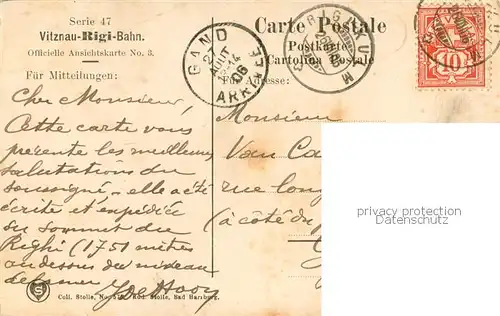 Serie 47
Vitznau-Rigi-Bahn.
Officielle Ansichtskarte No. 3.
Für Mitteilungen:
Carte Postale
Postkarte
Cartolina Postale
Für Adresse:
GAND
27
AOUT
06
ARRIVEE
RIGI KULM
10
Cher Monsieur,
Cette carte vous
présente les meilleurs
salutations du
soussigné - elle a été
écrite et expédiée
du sommet du
Righi (1751 mètres
au dessus du niveau
de la mer
Monsieur
Van Ca
rue long
(à côté du
privacy protection
Datenschutz
Coll. Stolle, No. Rud. Stolle, Bad Harzburg.